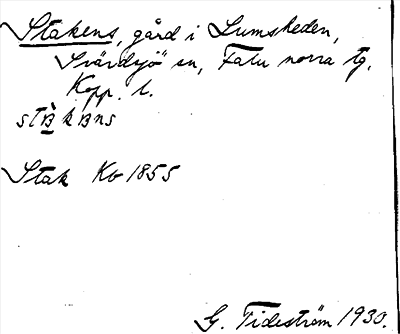 Stakens, gård i Lumsheden,
Svärdsjö sn, Falu norra tg.
Kopp. l.
stàkans
Stak Kb 1855
G. Tideström 1930.